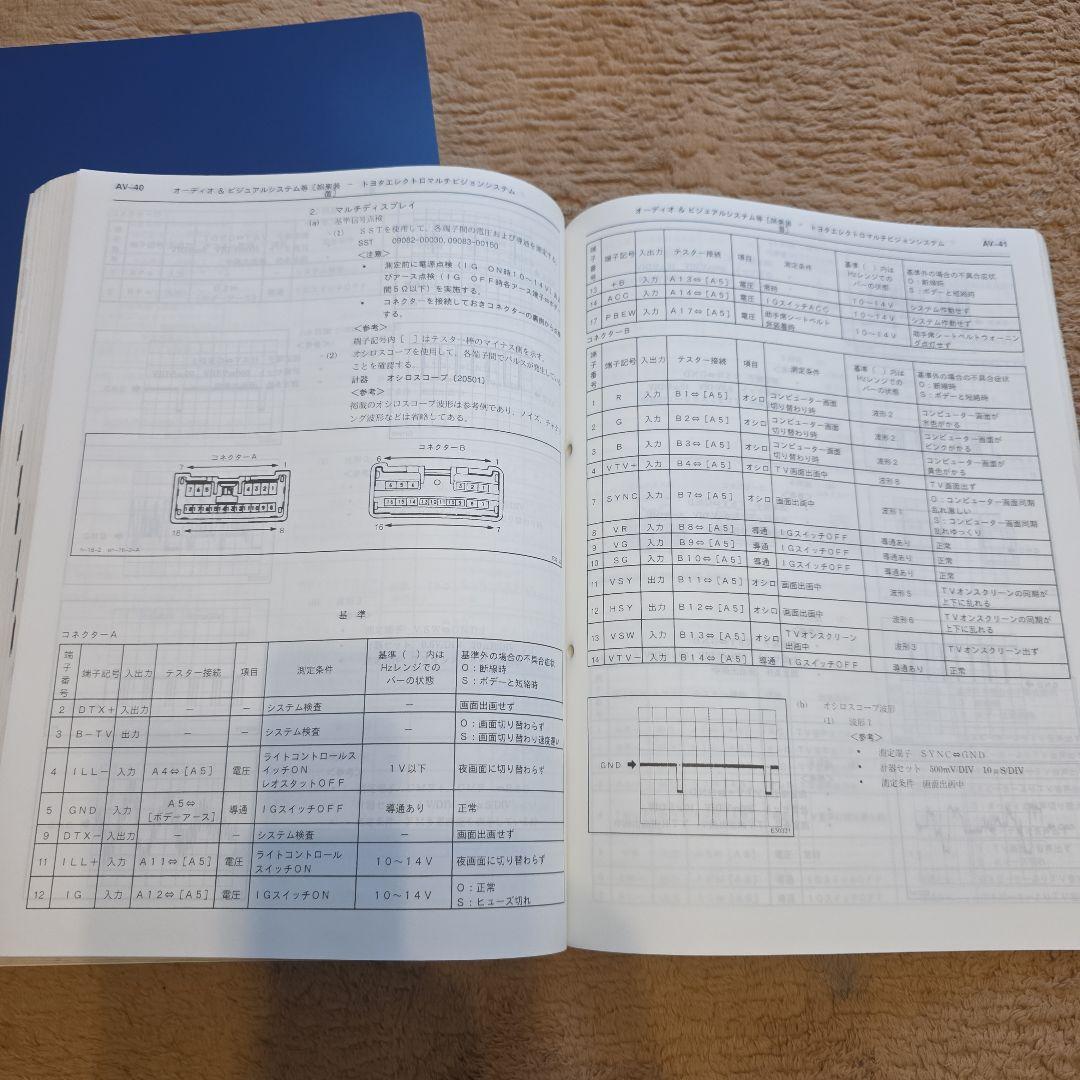 AV-40
オーディオ & ビジュアルシステム等[娯楽装置] - トヨタエレクトロマルチビジョンシステム
2. マルチディスプレイ
(a) 基準信号点検
(1) SSTを使用して、各端子間の電圧および導通を測定する
SST 09082-00030, 09083-00150
<注意>
• 測定前に電源点検(IG ON時10~14V)
びアース点検(IG OFF時各アース端子⇔ボデー
間5Ω以下)を実施する。
• コネクターを接続しておきコネクターの裏側から
する。
<参考>
端子記号内[ ]はテスター棒のマイナス側を示す。
(2) オシロスコープを使用して、各端子間でパルスが発生してい
ことを確認する。
計器 オシロスコープ[20501]
<参考>
掲載のオシロスコープ波形は参考例であり、ノイズ、チャタ
ング波形などは省略してある。
コネクターA
コネクターB
7 1
6 1
7 6 5 4 3 2 1
6 5 5 3 2 1
18 8
16 7
基準
コネクターA
端子番号 端子記号 入出力 テスター接続 項目 測定条件 基準( )内はHzレンジでのバーの状態 基準外の場合の不具合症状 O:断線時 S:ボデーと短絡時
2 DTX+ 入出力 － － システム検査 － 画面出画せず
3 B-TV 出力 － － システム検査 － O:画面切り替わらず S:画面切り替わり速度遅い
4 ILL- 入力 A4⇔[A5] 電圧 ライトコントロールスイッチON レオスタットOFF 1V以下 夜画面に切り替わらず
5 GND 入力 A5⇔[ボデーアース] 導通 IGスイッチOFF 導通あり 正常
9 DTX- 入出力 － － システム検査 － 画面出画せず
11 ILL+ 入力 A11⇔[A5] 電圧 ライトコントロールスイッチON 10~14V 夜画面に切り替わらず
12 IG 入力 A12⇔[A5] 電圧 IGスイッチON 10~14V O:正常 S:ヒューズ切れ
オーディオ & ビジュアルシステム等[娯楽装置] - トヨタエレクトロマルチビジョンシステム
AV-41
端子番号 端子記号 入出力 テスター接続 項目 測定条件 基準( )内はHzレンジでのバーの状態 基準外の場合の不具合症状 O:断線時 S:ボデーと短絡時
13 +B 入力 A13⇔[A5] 電圧 常時 10~14V システム作動せず
14 ACC 入力 A14⇔[A5] 電圧 IGスイッチACC 10~14V システム作動せず
17 PBEW 入力 A17⇔[A5] 電圧 助手席シートベルト非装着時 10~14V 助手席シートベルトウォーニング点灯せず
コネクターB
端子番号 端子記号 入出力 テスター接続 項目 測定条件 基準( )内はHzレンジでのバーの状態 基準外の場合の不具合症状 O:断線時 S:ボデーと短絡時
1 R 入力 B1⇔[A5] オシロ コンピューター画面切り替わり時 波形2 コンピューター画面が水色がかる
2 G 入力 B2⇔[A5] オシロ コンピューター画面切り替わり時 波形2 コンピューター画面がピンクがかる
3 B 入力 B3⇔[A5] オシロ コンピューター画面切り替わり時 波形2 コンピューター画面が黄色がかる
4 VTV+ 入力 B4⇔[A5] オシロ TV画面出画中 波形8 TV画面出ず
7 SYNC 入力 B7⇔[A5] オシロ 画面出画中 波形1 O:コンピューター画面同期乱れ激しい S:コンピューター画面同期乱れゆっくり
8 VR 入力 B8⇔[A5] 導通 IGスイッチOFF 導通あり 正常
9 VG 入力 B9⇔[A5] 導通 IGスイッチOFF 導通あり 正常
10 SG 入力 B10⇔[A5] 導通 IGスイッチOFF 導通あり 正常
11 VSY 出力 B11⇔[A5] オシロ 画面出画中 波形5 TVオンスクリーンの同期が上下に乱れる
12 HSY 出力 B12⇔[A5] オシロ 画面出画中 波形6 TVオンスクリーンの同期が上下に乱れる
13 VSW 入力 B13⇔[A5] オシロ TVオンスクリーン出画中 波形3 TVオンスクリーン出ず
14 VTV- 入力 B14⇔[A5] 導通 IGスイッチOFF 導通あり 正常
GND
E30321
(b) オシロスコープ波形
(1) 波形1
<参考>
• 測定端子 SYNC⇔GND
• 計器セット 500mV/DIV 10μS/DIV
• 測定条件 画面出画中